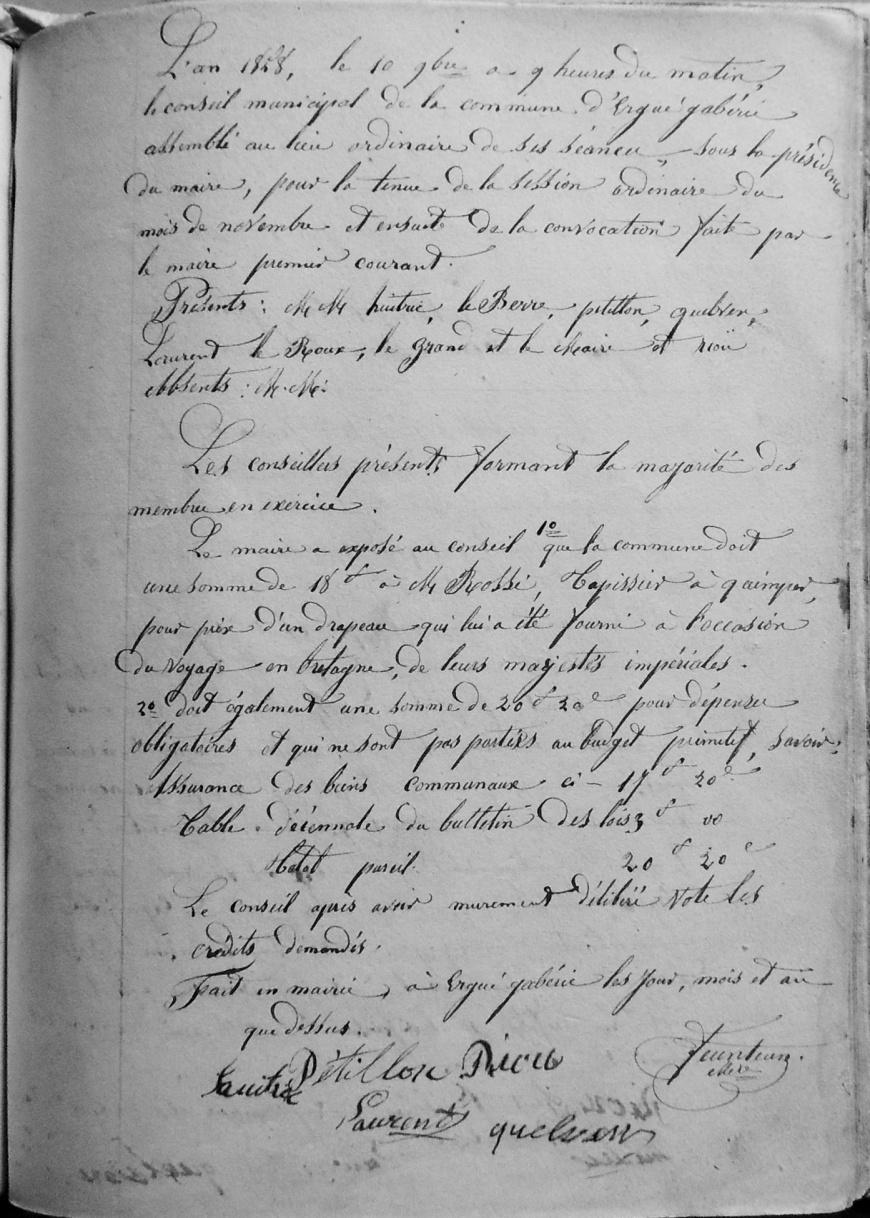 L'an 1858, le 10 9bre a 9 heures du matin,
le conseil municipal de la commune d'Ergué gabéric
assemblé au lieu ordinaire de ses séances, sous la présidence
du maire, pour la tenue de la session ordinaire du
mois de novembre et ensuite de la convocation faite par
le maire premier courant.
Présents : M M huitric, le Berre, petillon, quelven,
Laurent le Roux, le grand et le Maire et riou
Absents : M.M:
Les conseillers présents formant la majorité des
membres en exercice.
Le maire a exposé au conseil 1o que la commune doit
une somme de 18 f à M Rossi, Tapissier à quimper,
pour prix d'un drapeau qui lui a été fourni à l'occasion
du voyage en bretagne, de leurs majestés impériales.
2o doit également une somme de 20 f 20 c pour dépenses
obligatoires et qui ne sont pas portées au budget primitif, savoir:
Assurance des biens communaux ci - 17 f 20 c
Table décennale du bulletin des lois 3 f 00
Total pareil 20 f 20 c
Le conseil après avoir murement délibéré vote les
crédits demandés.
Fait en mairie, à Ergué gabéric les jour, mois et an
que dessus.
huitric Pétillon Riou
Laurent quelven